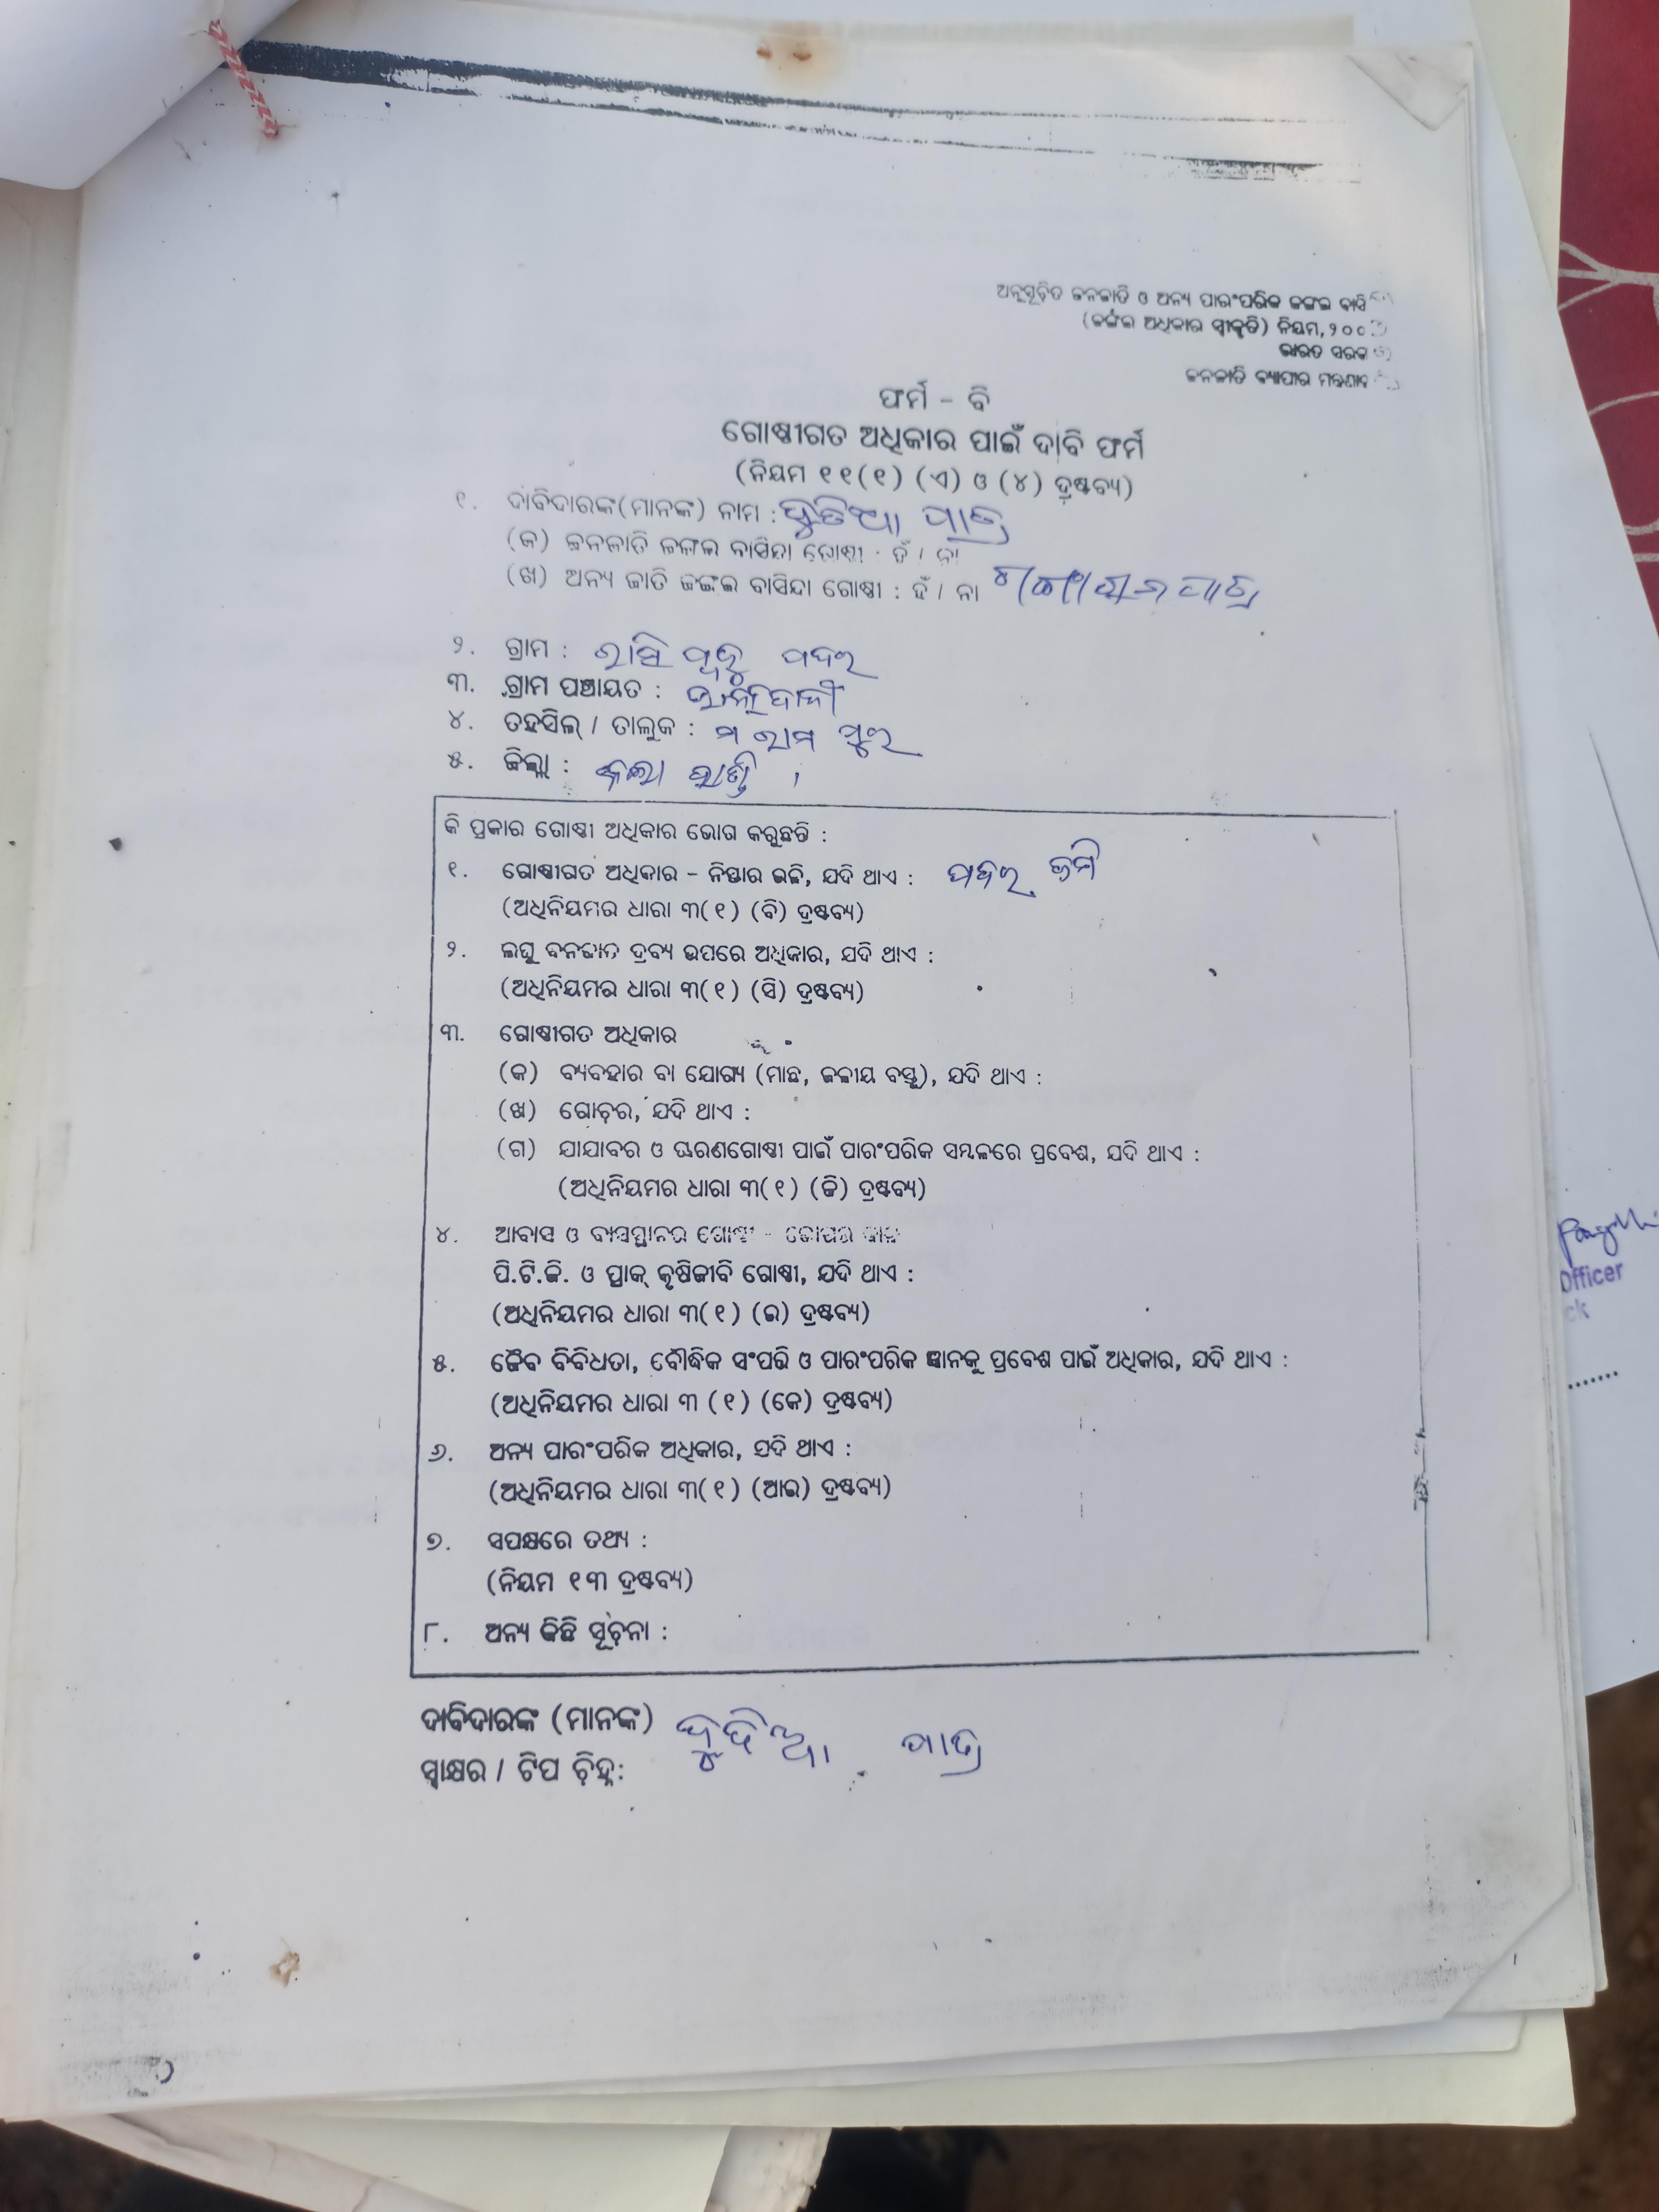 ଅନୁସୂଚିତ ଜନଜାତି ଓ ଅନ୍ୟ ପାରଂପରିକ ଜଙ୍ଗଲ ବାସି
(ଜଙ୍ଗଲ ଅଧିକାର ସ୍ୱୀକୃତି) ନିୟମ, ୨୦୦
ଭାରତ ସରକ
ଜନଜାତି ବ୍ୟାପାର ମନ୍ତ୍ରଣାଳ
ଫର୍ମ – ବି
ଗୋଷ୍ଠୀଗତ ଅଧିକାର ପାଇଁ ଦାବି ଫର୍ମ
(ନିୟମ ୧୧(୧) (ଏ) ଓ (୪) ଦ୍ରଷ୍ଟବ୍ୟ)
୧. ଦାବିଦାରଙ୍କ(ମାନଙ୍କ) ନାମ : ପାତ୍ର
(କ) ଜନଜାତି ଜଙ୍ଗଲ ବାସିନ୍ଦା ଗୋଷ୍ଠୀ : ହଁ / ନା
(ଖ) ଅନ୍ୟ ଜାତି ଜଙ୍ଗଲ ବାସିନ୍ଦା ଗୋଷ୍ଠୀ : ହଁ / ନା ପାତ୍ର
୨. ଗ୍ରାମ : ପଦର
୩. ଗ୍ରାମ ପଞ୍ଚାୟତ :
୪. ତହସିଲ୍ / ତାଲୁକ : ମ ରାମ ପୁର
୫. ଜିଲ୍ଲା : କଳା ହାଣ୍ଡି
କି ପ୍ରକାର ଗୋଷ୍ଠୀ ଅଧିକାର ଭୋଗ କରୁଛନ୍ତି :
୧. ଗୋଷ୍ଠୀଗତ ଅଧିକାର – ନିସ୍ତାର ଭଳି, ଯଦି ଥାଏ : ପଦର ଜମି
(ଅଧିନିୟମର ଧାରା ୩(୧) (ବି) ଦ୍ରଷ୍ଟବ୍ୟ)
୨. ଲଘୁ ବନଜାତ ଦ୍ରବ୍ୟ ଉପରେ ଅଧିକାର, ଯଦି ଥାଏ :
(ଅଧିନିୟମର ଧାରା ୩(୧) (ସି) ଦ୍ରଷ୍ଟବ୍ୟ)
୩. ଗୋଷ୍ଠୀଗତ ଅଧିକାର
(କ) ବ୍ୟବହାର ବା ଯୋଗ୍ୟ (ମାଛ, ଜଳୀୟ ବସ୍ତୁ), ଯଦି ଥାଏ :
(ଖ) ଗୋଚର, ଯଦି ଥାଏ :
(ଗ) ଯାଯାବର ଓ ଭ୍ରରଣଗୋଷ୍ଠୀ ପାଇଁ ପାରଂପରିକ ସମ୍ବଳରେ ପ୍ରବେଶ, ଯଦି ଥାଏ :
(ଅଧିନିୟମର ଧାରା ୩(୧) (ଜି) ଦ୍ରଷ୍ଟବ୍ୟ)
୪. ଆବାସ ଓ ବାସସ୍ଥାନର ଗୋଷ୍ଠୀ –
ପି.ଟି.ଜି. ଓ ପ୍ରାକ୍ କୃଷିଜୀବି ଗୋଷ୍ଠୀ, ଯଦି ଥାଏ :
(ଅଧିନିୟମର ଧାରା ୩(୧) (ଇ) ଦ୍ରଷ୍ଟବ୍ୟ)
୫. ଜୈବ ବିବିଧତା, ବୌଦ୍ଧିକ ସଂପତ୍ତି ଓ ପାରଂପରିକ ଜ୍ଞାନକୁ ପ୍ରବେଶ ପାଇଁ ଅଧିକାର, ଯଦି ଥାଏ :
(ଅଧିନିୟମର ଧାରା ୩ (୧) (କେ) ଦ୍ରଷ୍ଟବ୍ୟ)
୬. ଅନ୍ୟ ପାରଂପରିକ ଅଧିକାର, ଯଦି ଥାଏ :
(ଅଧିନିୟମର ଧାରା ୩(୧) (ଆଇ) ଦ୍ରଷ୍ଟବ୍ୟ)
୭. ସପକ୍ଷରେ ତଥ୍ୟ :
(ନିୟମ ୧୩ ଦ୍ରଷ୍ଟବ୍ୟ)
୮. ଅନ୍ୟ କିଛି ସୂଚନା :
ଦାବିଦାରଙ୍କ (ମାନଙ୍କ) ପାତ୍ର
ସ୍ୱାକ୍ଷର / ଟିପ ଚିହ୍ନ:
Officer
ck